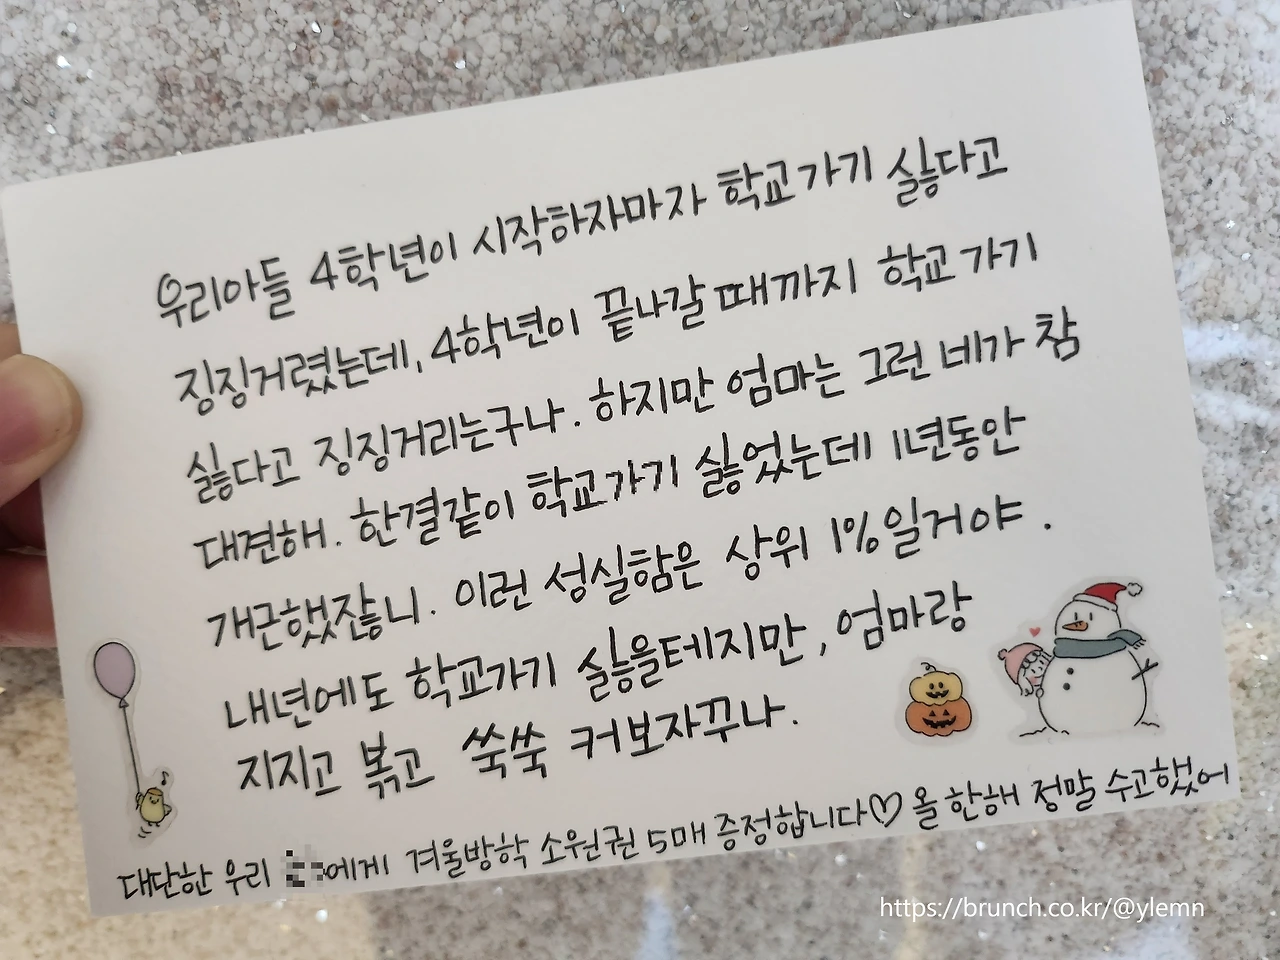 우리아들 4학년이 시작하자마자 학교가기 싫다고
징징거렸는데, 4학년이 끝나갈 때까지 학교 가기
싫다고 징징거리는구나. 하지만 엄마는 그런 네가 참
대견해. 한결같이 학교가기 싫었는데 1년동안
개근했잖니. 이런 성실함은 상위 1%일거야.
내년에도 학교가기 싫을테지만, 엄마랑
지지고 볶고 쑥쑥 커보자꾸나.
대단한 우리 에게 겨울방학 소원권 5매 증정합니다♡ 올 한해 정말 수고했어
https://brunch.co.kr/@ylemn